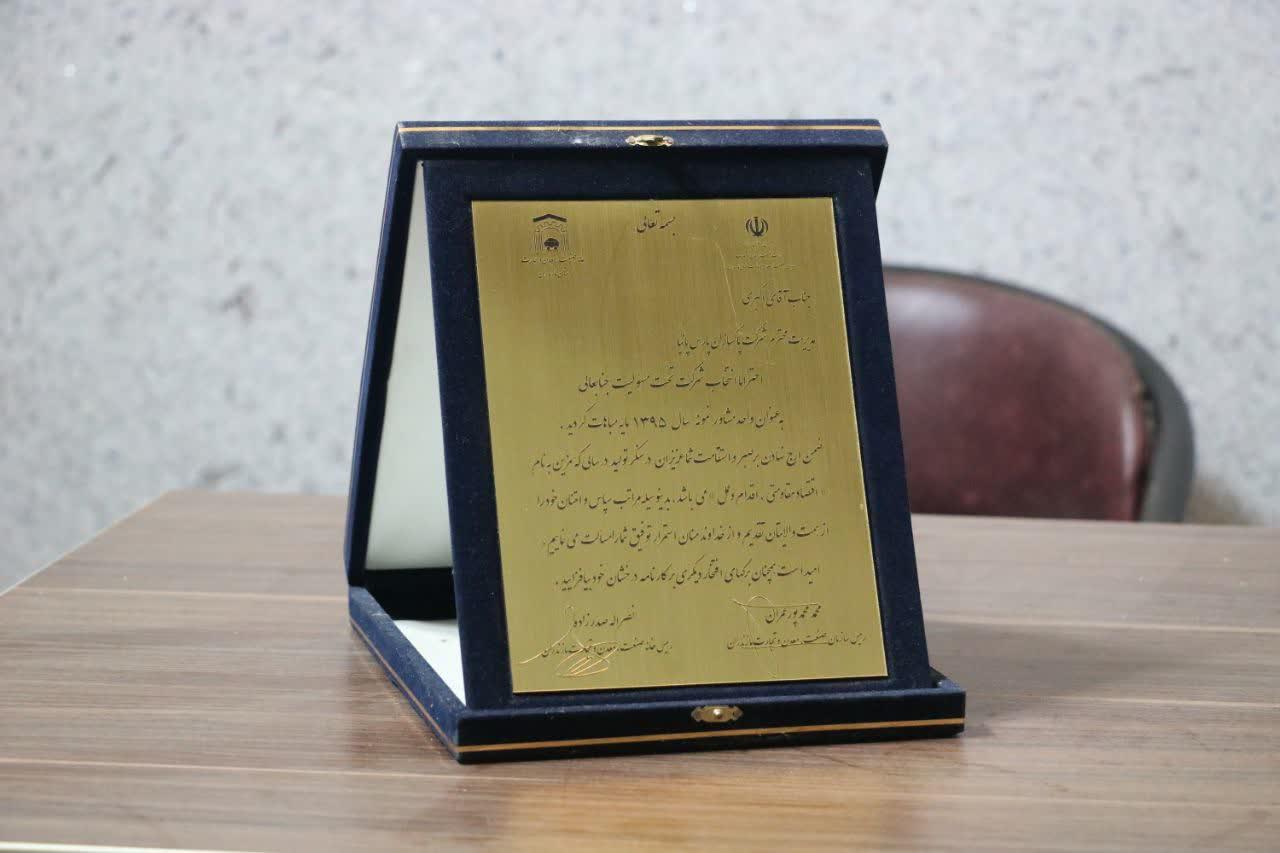 بسمه تعالی
خانه صنعت، معدن و تجارت
استان مازندران
جناب آقای اکبری
مدیریت محترم شرکت پاکسازان پارس پانیا
احتراما انتخاب شرکت تحت مسولیت جنابعالی
به عنوان واحد مشاور نمونه سال ۱۳۹۵ مایه مباهات گردید .
ضمن ارج نهادن بر صبر و استقامت شما عزیزان در سنگر تولید در سالی که مزین به نام
« اقتصاد مقاومتی ، اقدام و عمل » می باشد ، بدینوسیله مراتب سپاس و امتنان خود را
از همت والایتان تقدیم و از خداوند منان استمرار توفیق شما را مسالت می نماییم .
امید است همچنان برگهای افتخار دیگری بر کارنامه درخشان خود بیافزایید .
محمد محمدپور عمران
رییس سازمان صنعت، معدن و تجارت مازندران
نصراله صدرزاده
رییس خانه صنعت، معدن و تجارت مازندران